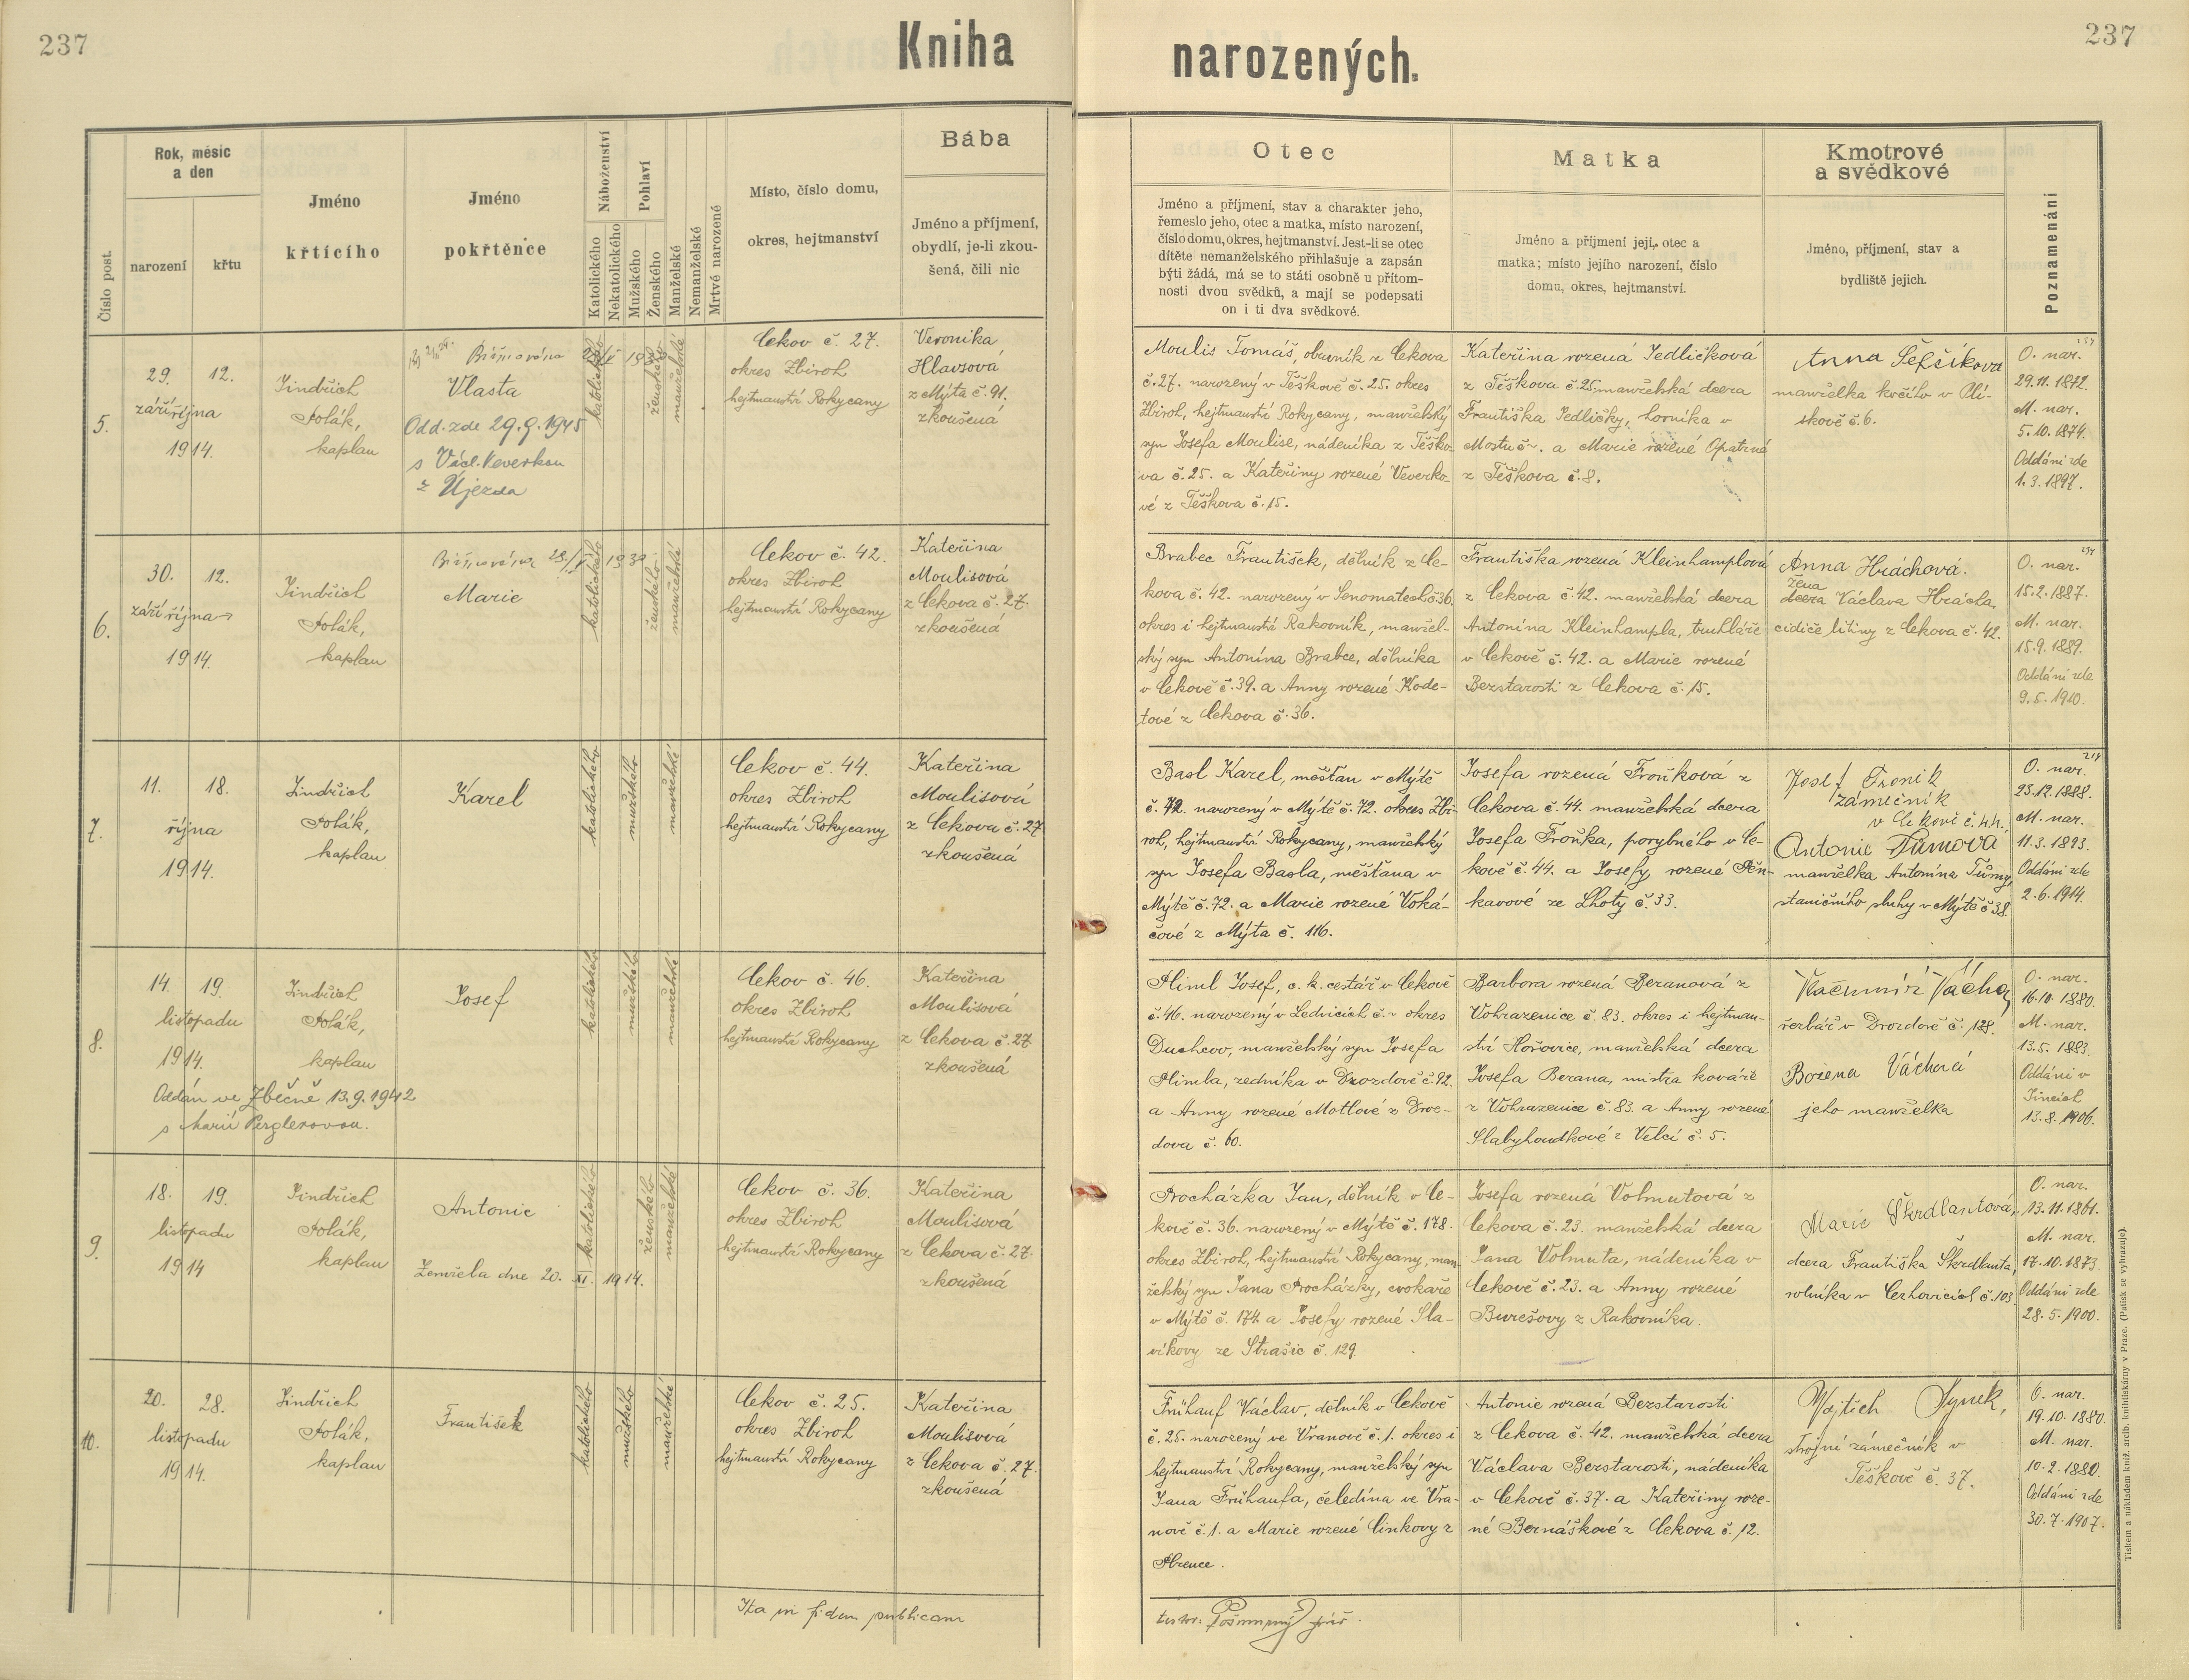 237
Kniha
narozených.
237
Číslo post.
Rok, měsíc
a den
narození
křtu
Jméno
křtícího
Jméno
pokřtěnce
Náboženství
Katolického
Nekatolického
Pohlaví
Mužského
Ženského
Manželské
Nemanželské
Mrtvé narozené
Místo, číslo domu,
okres, hejtmanství
Bába
Jméno a příjmení,
obydlí, je-li zkou-
šená, čili nic
Otec
Jméno a příjmení, stav a charakter jeho,
řemeslo jeho, otec a matka, místo narození,
číslo domu, okres, hejtmanství. Jest-li se otec
dítěte nemanželského přihlašuje a zapsán
býti žádá, má se to státi osobně u přítom-
nosti dvou svědků, a mají se podepsati
on i ti dva svědkové.
Matka
Jméno a příjmení její, otec a
matka; místo jejího narození, číslo
domu, okres, hejtmanství.
Kmotrové
a svědkové
Jméno, příjmení, stav a
bydliště jejich.
Poznamenání
5.
29. 12.
září října
1914.
Jindřich
Polák,
kaplan
Biřmována
Vlasta
Odd. zde 29.9.1945
s Václ. Veverkou
z Újezda
katolického
ženského
manželské
Cekov č. 27.
okres Zbiroh
hejtmanství Rokycany
Veronika
Hlavsová
z Mýta č. 91.
zkoušená
Moulis Tomáš, obuvník z Cekova
č. 27. narozený v Těškově č. 25. okres
Zbiroh, hejtmanství Rokycany, manželský
syn Josefa Moulise, nádeníka z Těško-
va č. 25. a Kateřiny rozené Veverko-
vé z Těškova č. 15.
Kateřina rozená Jedličková
z Těškova č. 25 manželská dcera
Františka Jedličky, horníka v
Mostu č. ~. a Marie rozené Opatrné
z Těškova č. 8.
Anna Šefčíkova
manželka
skově č. 6.
O. nar.
29.11.1872.
M. nar.
5.10.1874.
Oddáni zde
1.3.1897.
6.
30. 12.
září října
1914.
Jindřich
Polák,
kaplan
Biřmována
Marie
katolického
ženského
manželské
Cekov č. 42.
okres Zbiroh
hejtmanství Rokycany
Kateřina
Moulisová
z Cekova č. 27.
zkoušená
Brabec František, dělník z Ce-
kova č. 42. narozený v Senomatech č. 36.
okres i hejtmanství Rakovník, manžel-
ský syn Antonína Brabce, dělníka
v Cekově č. 39. a Anny rozené Kode-
tové z Cekova č. 36.
Františka rozená Kleinhamplová
z Cekova č. 42. manželská dcera
Antonína Kleinhampla, truhláře
v Cekově č. 42. a Marie rozené
Bezstarosti z Cekova č. 15.
Anna Hráchová.
žena
dcera Václava Hrácha
cidiče litiny z Cekova č. 42.
O. nar.
15.2.1887.
M. nar.
15.9.1889.
Oddáni zde
9.5.1910.
7.
11. 18.
října
1914.
Jindřich
Polák,
kaplan
Karel
katolického
mužského
manželské
Cekov č. 44.
okres Zbiroh
hejtmanství Rokycany
Kateřina
Moulisová
z Cekova č. 27
zkoušená
Basl Karel, měšťan v Mýtě
č. 72. narozený v Mýtě č. 72. okres Zbi-
roh, hejtmanství Rokycany, manželský
syn Josefa Basla, měšťana v
Mýtě č. 72. a Marie rozené Voká-
čové z Mýta č. 116.
Josefa rozená Froňková z
Cekova č. 44. manželská dcera
Josefa Froňka, porybného v Ce-
kově č. 44. a Josefy rozené Pěn-
kavové ze Lhoty č. 33.
Josef Fronik
zámečník
v Cekově č. 44.
Antonie Tůmová
manželka Antonína Tůmy,
staničního sluhy v Mýtě č. 38.
O. nar.
25.12.1888.
M. nar.
11.3.1893.
Oddáni zde
2.6.1914.
8.
14. 19.
listopadu
1914.
Jindřich
Polák,
kaplan
Oddán ve Zbečně 13.9.1942
s Marií Perglerovou.
Josef
katolického
mužského
manželské
Cekov č. 46.
okres Zbiroh
hejtmanství Rokycany
Kateřina
Moulisová
z Cekova č. 27
zkoušená
Pliml Josef, c. k. cestář v Cekově
č. 46. narozený v Ledvicích č. ~ okres
Duchcov, manželský syn Josefa
Plimla, zedníka v Drozdově č. 92.
a Anny rozené Motlové z Droz-
dova č. 60.
Barbora rozená Beranová z
Vohrazenice č. 83. okres i hejtman-
ství Hořovice, manželská dcera
Josefa Berana, mistra kováře
z Vohrazenice č. 83. a Anny rozené
Slabyhoudkové z Velcí č. 5.
Vácha
řezbář v Drozdově č. 128.
Božena Váchová
jeho manželka
O. nar.
16.10.1880.
M. nar.
13.5.1883.
Oddáni v
Jincích
13.8.1906.
9.
18. 19.
listopadu
1914
Jindřich
Polák,
kaplan
Antonie
Zemřela dne 20. XI. 1914.
katolického
ženského
manželské
Cekov č. 36.
okres Zbiroh
hejtmanství Rokycany
Kateřina
Moulisová
z Cekova č. 27.
zkoušená
Procházka Jan, dělník v Ce-
kově č. 36. narozený v Mýtě č. 178.
okres Zbiroh, hejtmanství Rokycany, man-
želský syn Jana Procházky, cvokaře
v Mýtě č. 174. a Josefy rozené Sla-
víkovy ze Strašic č. 129
Josefa rozená Volmutová z
Cekova č. 23. manželská dcera
Jana Volmuta, nádeníka v
Cekově č. 23. a Anny rozené
Burešovy z Rakovníka.
Marie Škrdlantová,
dcera Františka Škrdlanta,
rolníka v Cerhovicích č. 103.
O. nar.
13.11.1861.
M. nar.
17.10.1873.
Oddáni zde
28.5.1900.
10.
20. 28.
listopadu
1914.
Jindřich
Polák,
kaplan
František
katolického
mužského
manželské
Cekov č. 25.
okres Zbiroh
hejtmanství Rokycany
Kateřina
Moulisová
z Cekova č. 27.
zkoušená
Frühauf Václav, dělník v Cekově
č. 25. narozený ve Vranově č. 1. okres i
hejtmanství Rokycany, manželský syn
Jana Frühaufa, čeledína ve Vra-
nově č. 1. a Marie rozené Cinkovy z
Antonie rozená Bezstarosti
z Cekova č. 42. manželská dcera
Václava Bezstarosti, nádeníka
v Cekově č. 37. a Kateřiny roze-
né Bernáškové z Cekova č. 12.
Vojtěch Synek,
strojní zámečník v
Těškově č. 37.
O. nar.
19.10.1880.
M. nar.
10.2.1880.
Oddáni zde
30.7.1907.
Ita in fidem publicam
Tiskem a nákladem kníž. arcib. knihtiskárny v Praze. (Patisk se vyhrazuje)